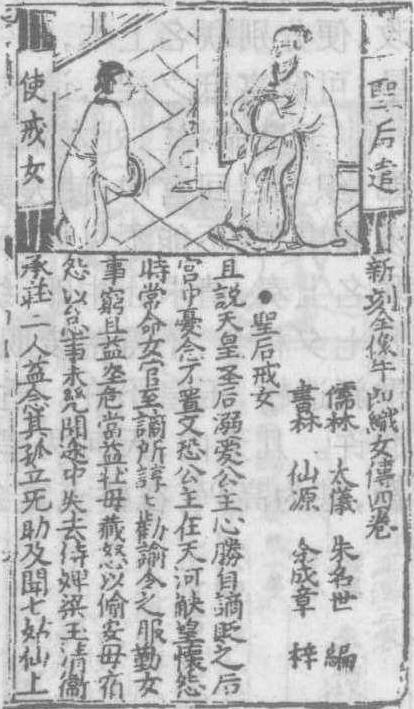 聖后遣
使戒女
新刻全像牛郎織女傳四卷
儒林 太儀 朱名世 編
書林 仙源 余成章 梓
●聖后戒女
且說天皇圣后溺愛公主心勝自謫貶之后
宮中憂念不置又恐公主在天河觖望懷怨
時常命女官至謫所諄〻勸諭令之服勤女
事窮且益坚危當益壯毋藏怒以偷安毋宿
怨以怠事未聞途中失去侍婢梁玉清衞
承莊二人益念其孤立无助及聞七姑仙上